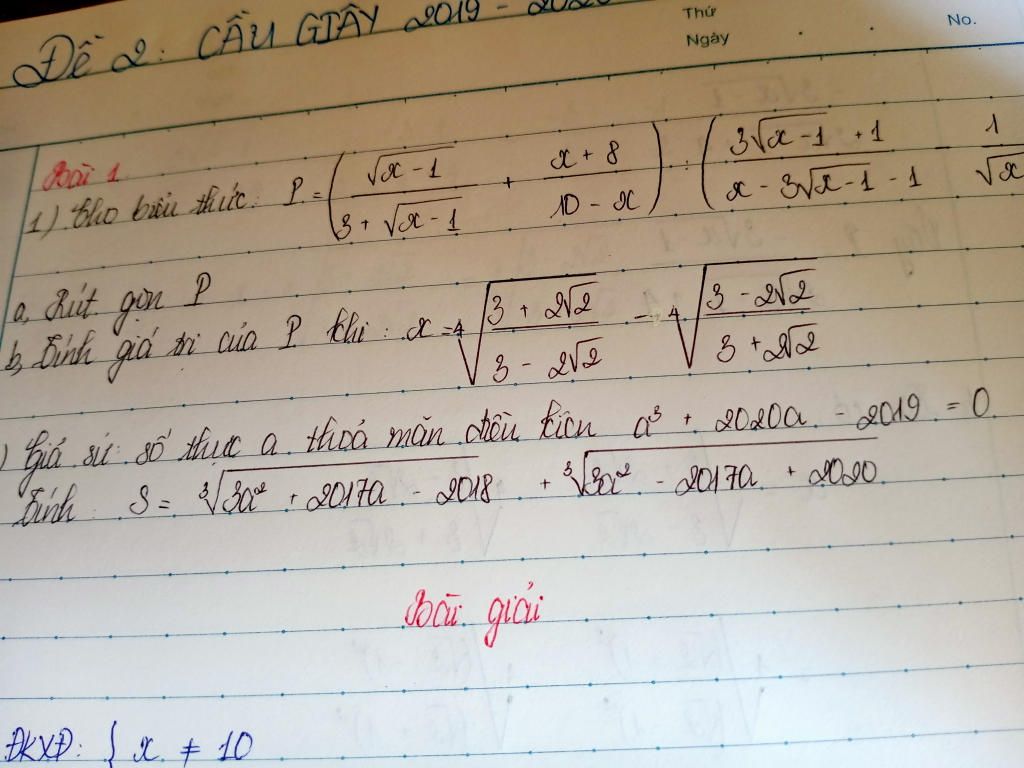 Đề 2: CẦU GIẤY 2019 - 2020
Thứ
Ngày
No.
Bài 1
1) Cho biểu thức: P = (√(x - 1) / (3 + √(x - 1)) + (x + 8) / (10 - x)) : ((3√(x - 1) + 1) / (x - 3√(x - 1) - 1) - 1 / √x
a, Rút gọn P
b, Tính giá trị của P khi: x = ⁴√((3 + 2√2) / (3 - 2√2)) - ⁴√((3 - 2√2) / (3 + 2√2))
) Giả sử số thực a thoả mãn điều kiện a³ + 2020a - 2019 = 0
Tính: S = ³√(3a² + 2017a - 2018) + ³√(3a² - 2017a + 2020)
Bài giải
ĐKXĐ: { x ≠ 10